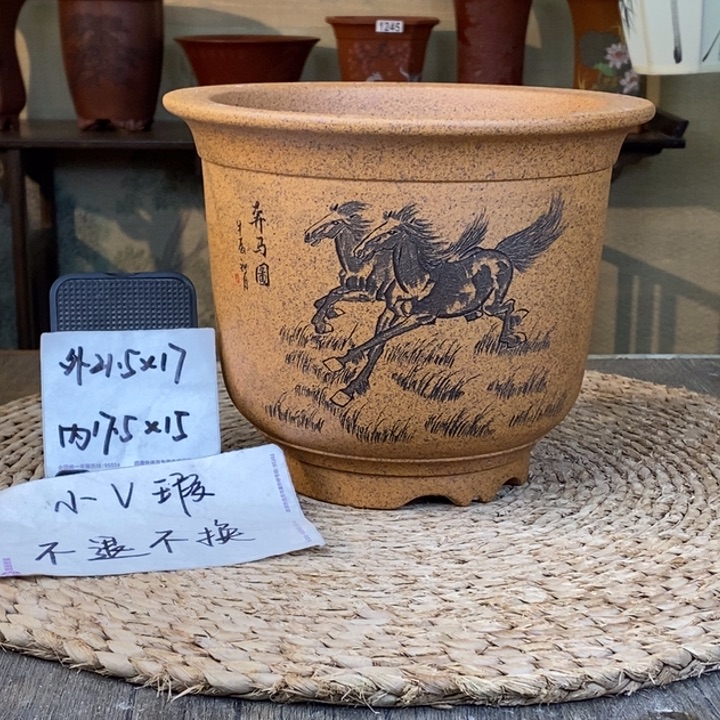 1245
奔马图
外21.5x17
内17.5x15
小V瑕
不退不换